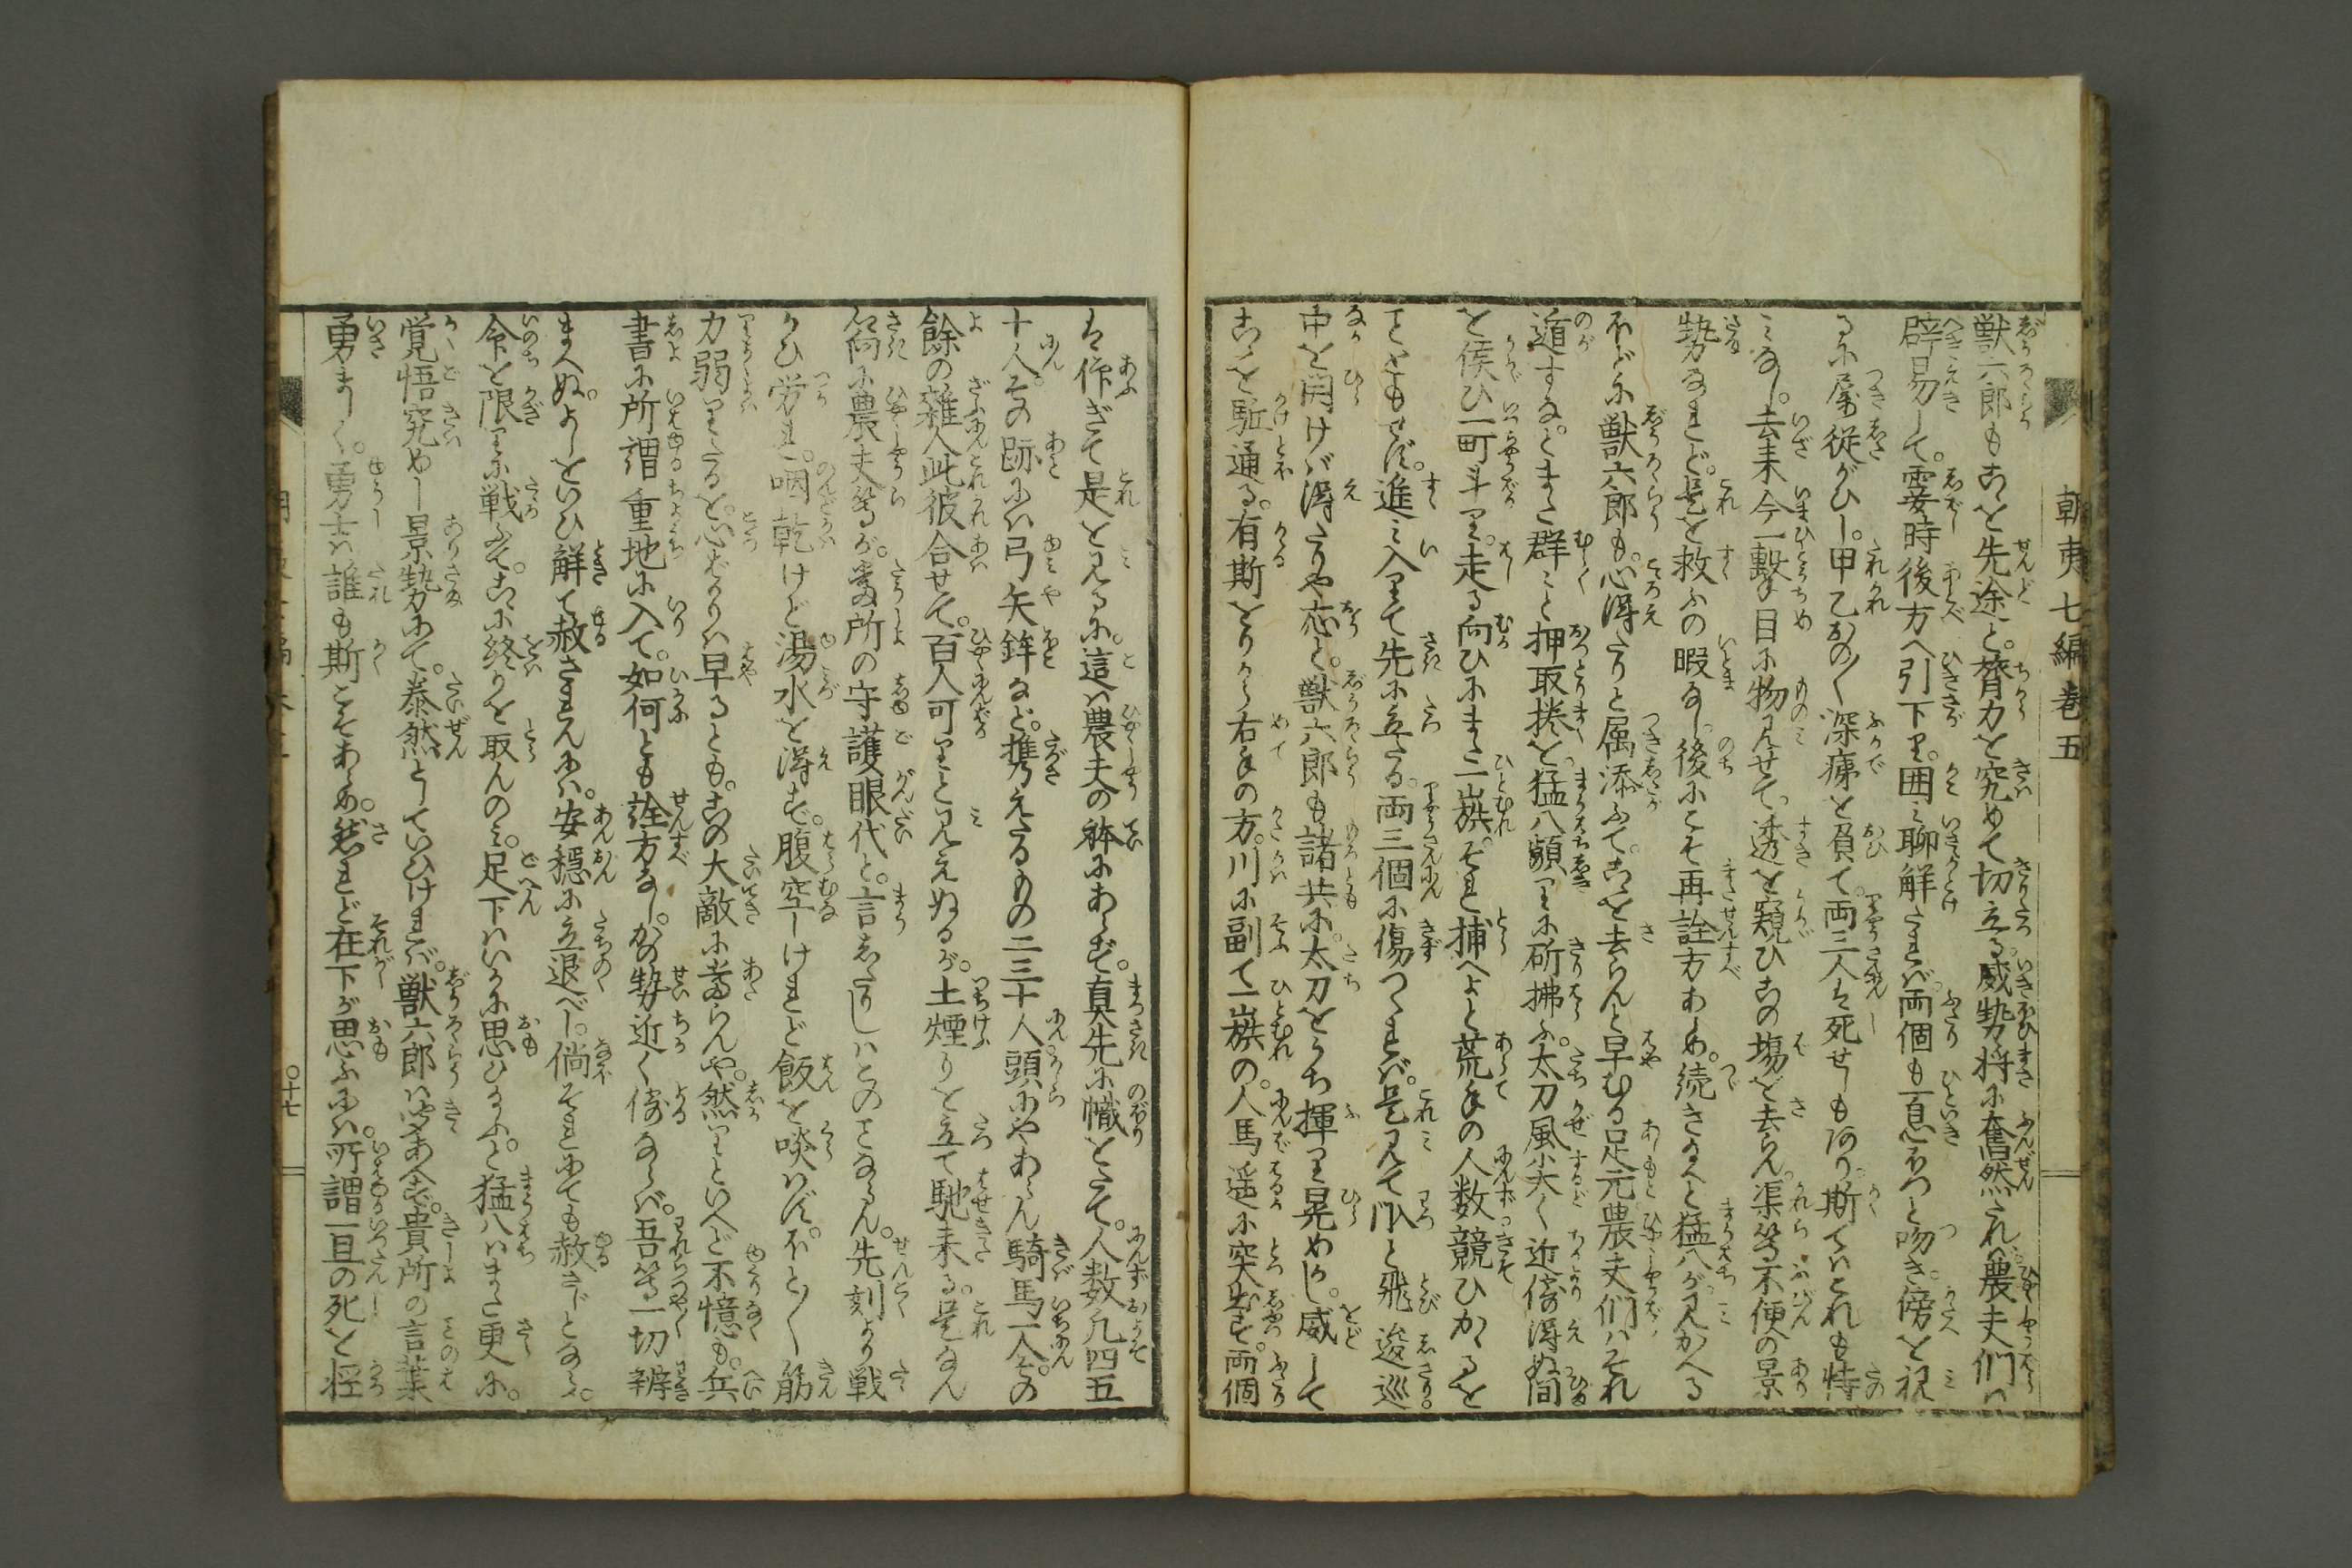 朝夷七編巻五
獣六郎もこゝを先途と。膂力を究めて切立る。威勢将に奮然たれば農夫們は
辟易して。霎時後方へ引下り。囲ミ聊解たれば。両個も一息ホつと吻き。傍を視
るに属従がひし。甲乙おの〳〵深痍を負て。両三人は死せしもあり。斯てはこれも恃
ミなし。去来今一毄目に物見せて。透を窺ひこの場を去らん。渠等不便の景
勢なれど。是を救ふの暇なし。後にこそ再詮方あらめ。続き給へと猛八が。見かへる
ほどに獣六郎も。心得たりと属添ふて。こゝを去らんと早むる足元農夫們はそれ
遁すなと。また群々と押取捲を。猛八頻りに斫拂ふ。太刀風尖く近傍得ぬ間
を候ひ一町斗り。走る向ひにまた一簇。それ捕へよと荒手の人数競ひかゝるを
ことともせず。進ミ入りて先に立たる。両三個に傷つくれば。是見て𠮟と飛逡巡。
中を開けば得たりや応と。獣六郎も諸共に。太刀をうち揮り晃めかし。威して
こゝを駈通る。有斯とりから右手の方。川に副て一簇の。人馬遥に突出す。両個
は仰ぎて是を見るに。這は農夫の体にあらず。真先に幟をたて。人数凡四五
十人。その跡には弓矢鉾など。携えたるもの二三十人頭にやあらん騎馬一人。その
餘の雑人此彼合せて。百人可りと見えぬるが。土煙りを立て馳来る。是なん
先向に農夫等が。当所の守護眼代と。言しらせしはこの事ならん。先刻より戦
かひ労れ。咽乾けど湯水を得ず。腹空しけれど飯を啖はず。ほと〳〵筋
力弱りたるを。心ばかりは早るとも。この大敵に当らんや。然りといへど不憶も。兵
書に所謂重地に入て。如何とも詮方なし。かの勢近く倚るならば。吾等一切辨
まへぬ。よしをいひ解て赦されんには。安穏に立退べし。倘それにても赦さじとならば。
命を限りに戦ふて。こゝに終りを取んのミ。足下はいかに思ひ給ふと。猛八はまた更に。
覚悟究めし景勢にて。泰然としていひければ。獣六郎は聞あへず。貴所の言葉
勇まし〳〵。勇士は誰も斯こそあらめ。然れど在下が思ふには。所謂一旦の死を軽
〇十七